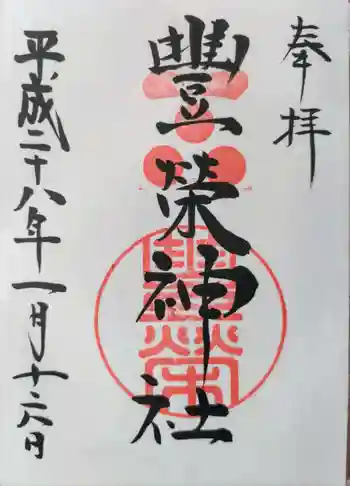 奉拝
豐榮神社
平成二十八年一月十六日